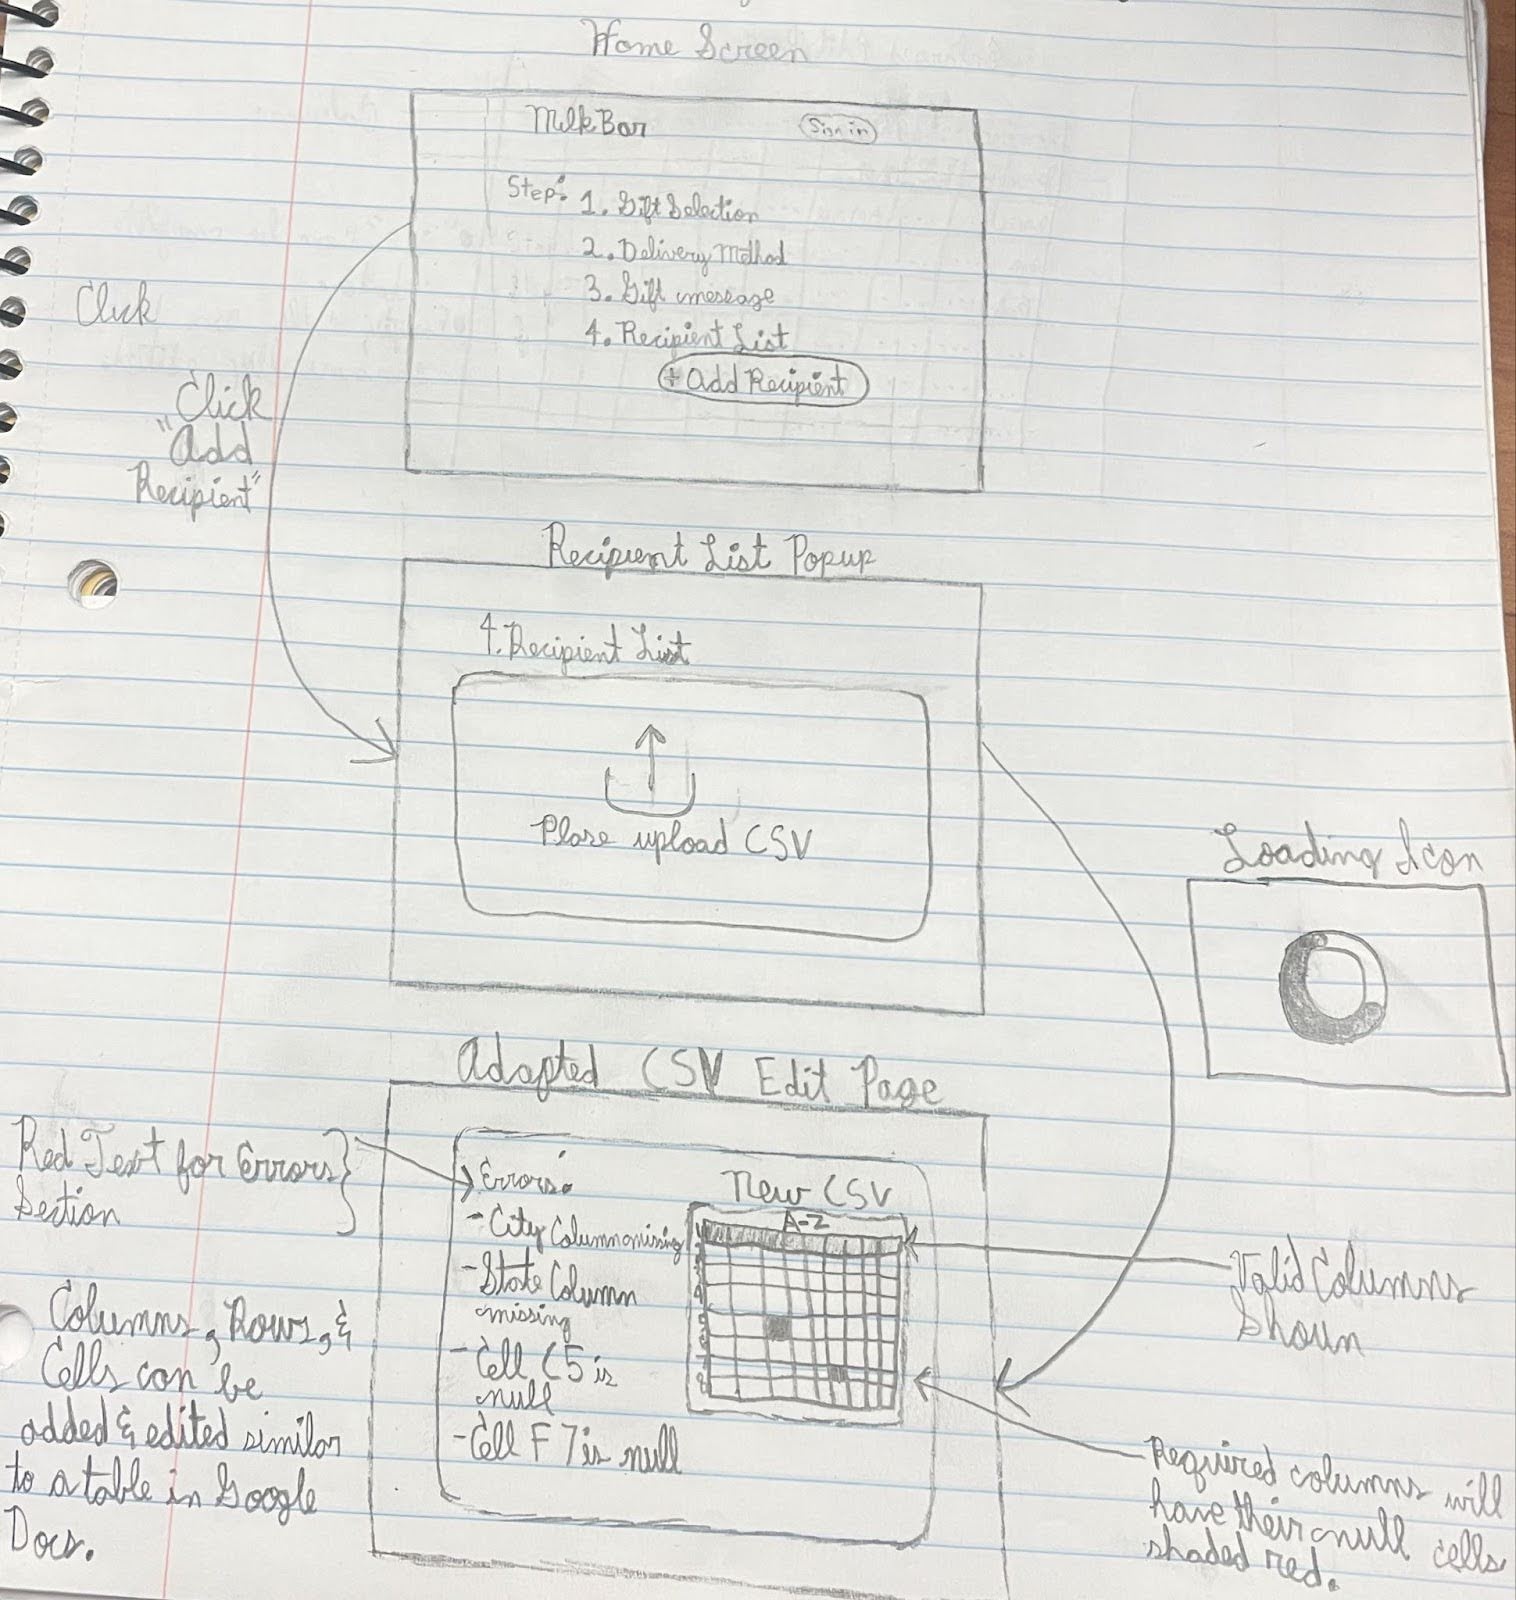 Home Screen
MilkBar
Sign in
Step: 1. Gift Selection
2. Delivery Method
3. Gift message
4. Recipient List
+ Add Recipient
Click
Click
"Add
Recipient"
Recipient List Popup
4. Recipient List
Plase upload CSV
Loading Icon
Adapted CSV Edit Page
Red Text for Errors
Section
Errors:
- City Column missing
- State Column
missing
- Cell C5 is
null
- Cell F7 is null
New CSV
A-Z
1
2
3
4
5
6
7
8
Valid Columns
Shown
Columns, Rows, &
Cells can be
added & edited similar
to a table in Google
Docs.
Required columns will
have their null cells
shaded red.